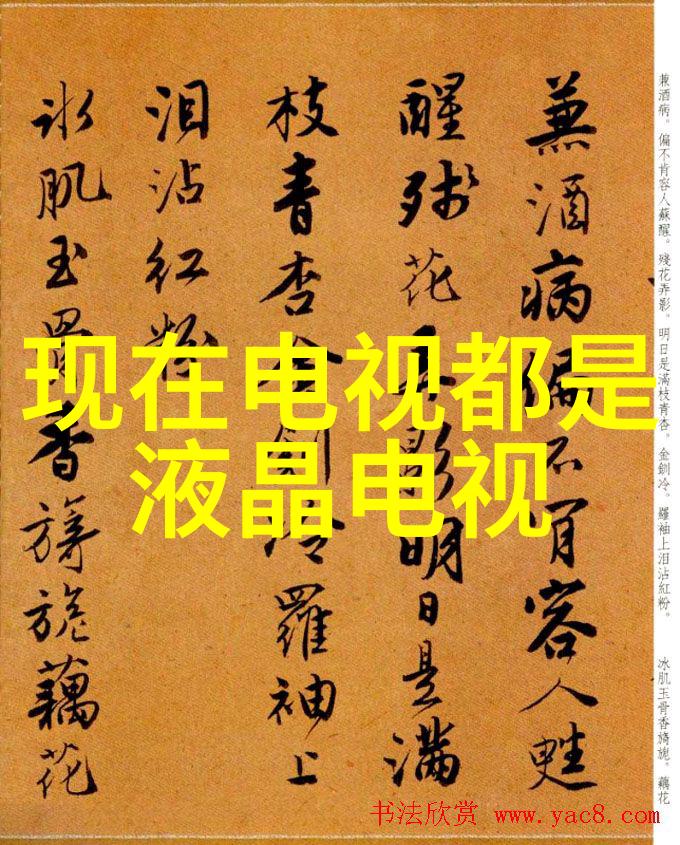 兼酒病。偏不肯容人蘇醒。殘花弄影。明日是滿枝青杏。金釧冷。羅袖上泪沾紅粉。
冰肌玉骨香旖旎。藕花
兼酒病偏不肯容人甦
醒残花弄影明日是满
枝青杏金釧冷羅袖上
泪沾红粉
冰肌玉骨香旖旎藕花
现在电视都是
液晶电视
书法欣赏 www.yac8.com